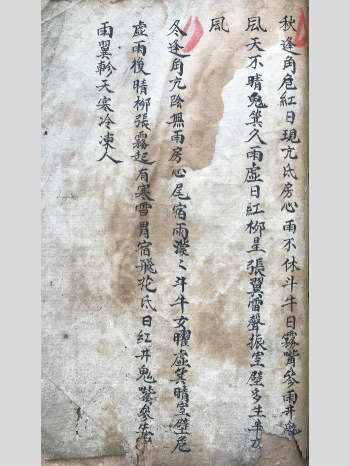 秋逢角危紅日現亢氐房心雨不休斗牛日霧觜參雨井鬼
凨天不晴鬼箕久雨虛日紅柳星張翼雷聲振室壁多生平
凨
冬逢角亢陰無雨房心尾宿雨濛〻斗牛女曜虛箕晴室壁危
虛雨後晴柳張霧起有寒雪胃宿飛花氐日紅井鬼觜參
雨翼軫天寒冷凍人